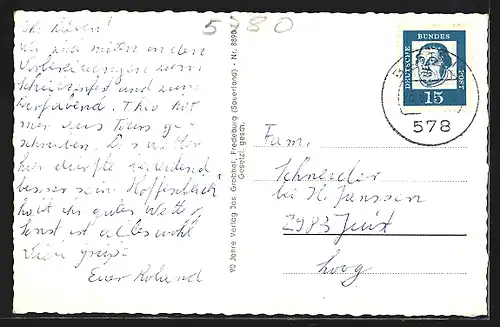 5880
Ihr Lieben!
Wir sind mitten in den
Vorbereitungen zum
Schützenfest und zum
Dorfabend. Theo hat
mir aus Tours ge-
schrieben. Das Wetter
hier dürfte
besser sein. Hoffentlich
habt ihr gutes Wetter.
Sonst ist alles wohl
Viele Grüße
Euer Roland
90 Jahre Verlag Jos. Grobbel, Fredeburg (Sauerland) - Nr. 8890
Gesetzl. gesch.
DEUTSCHE BUNDES POST
15
578
Fam.
Schneider
bei H. Janssen
2983 Juist
Loog